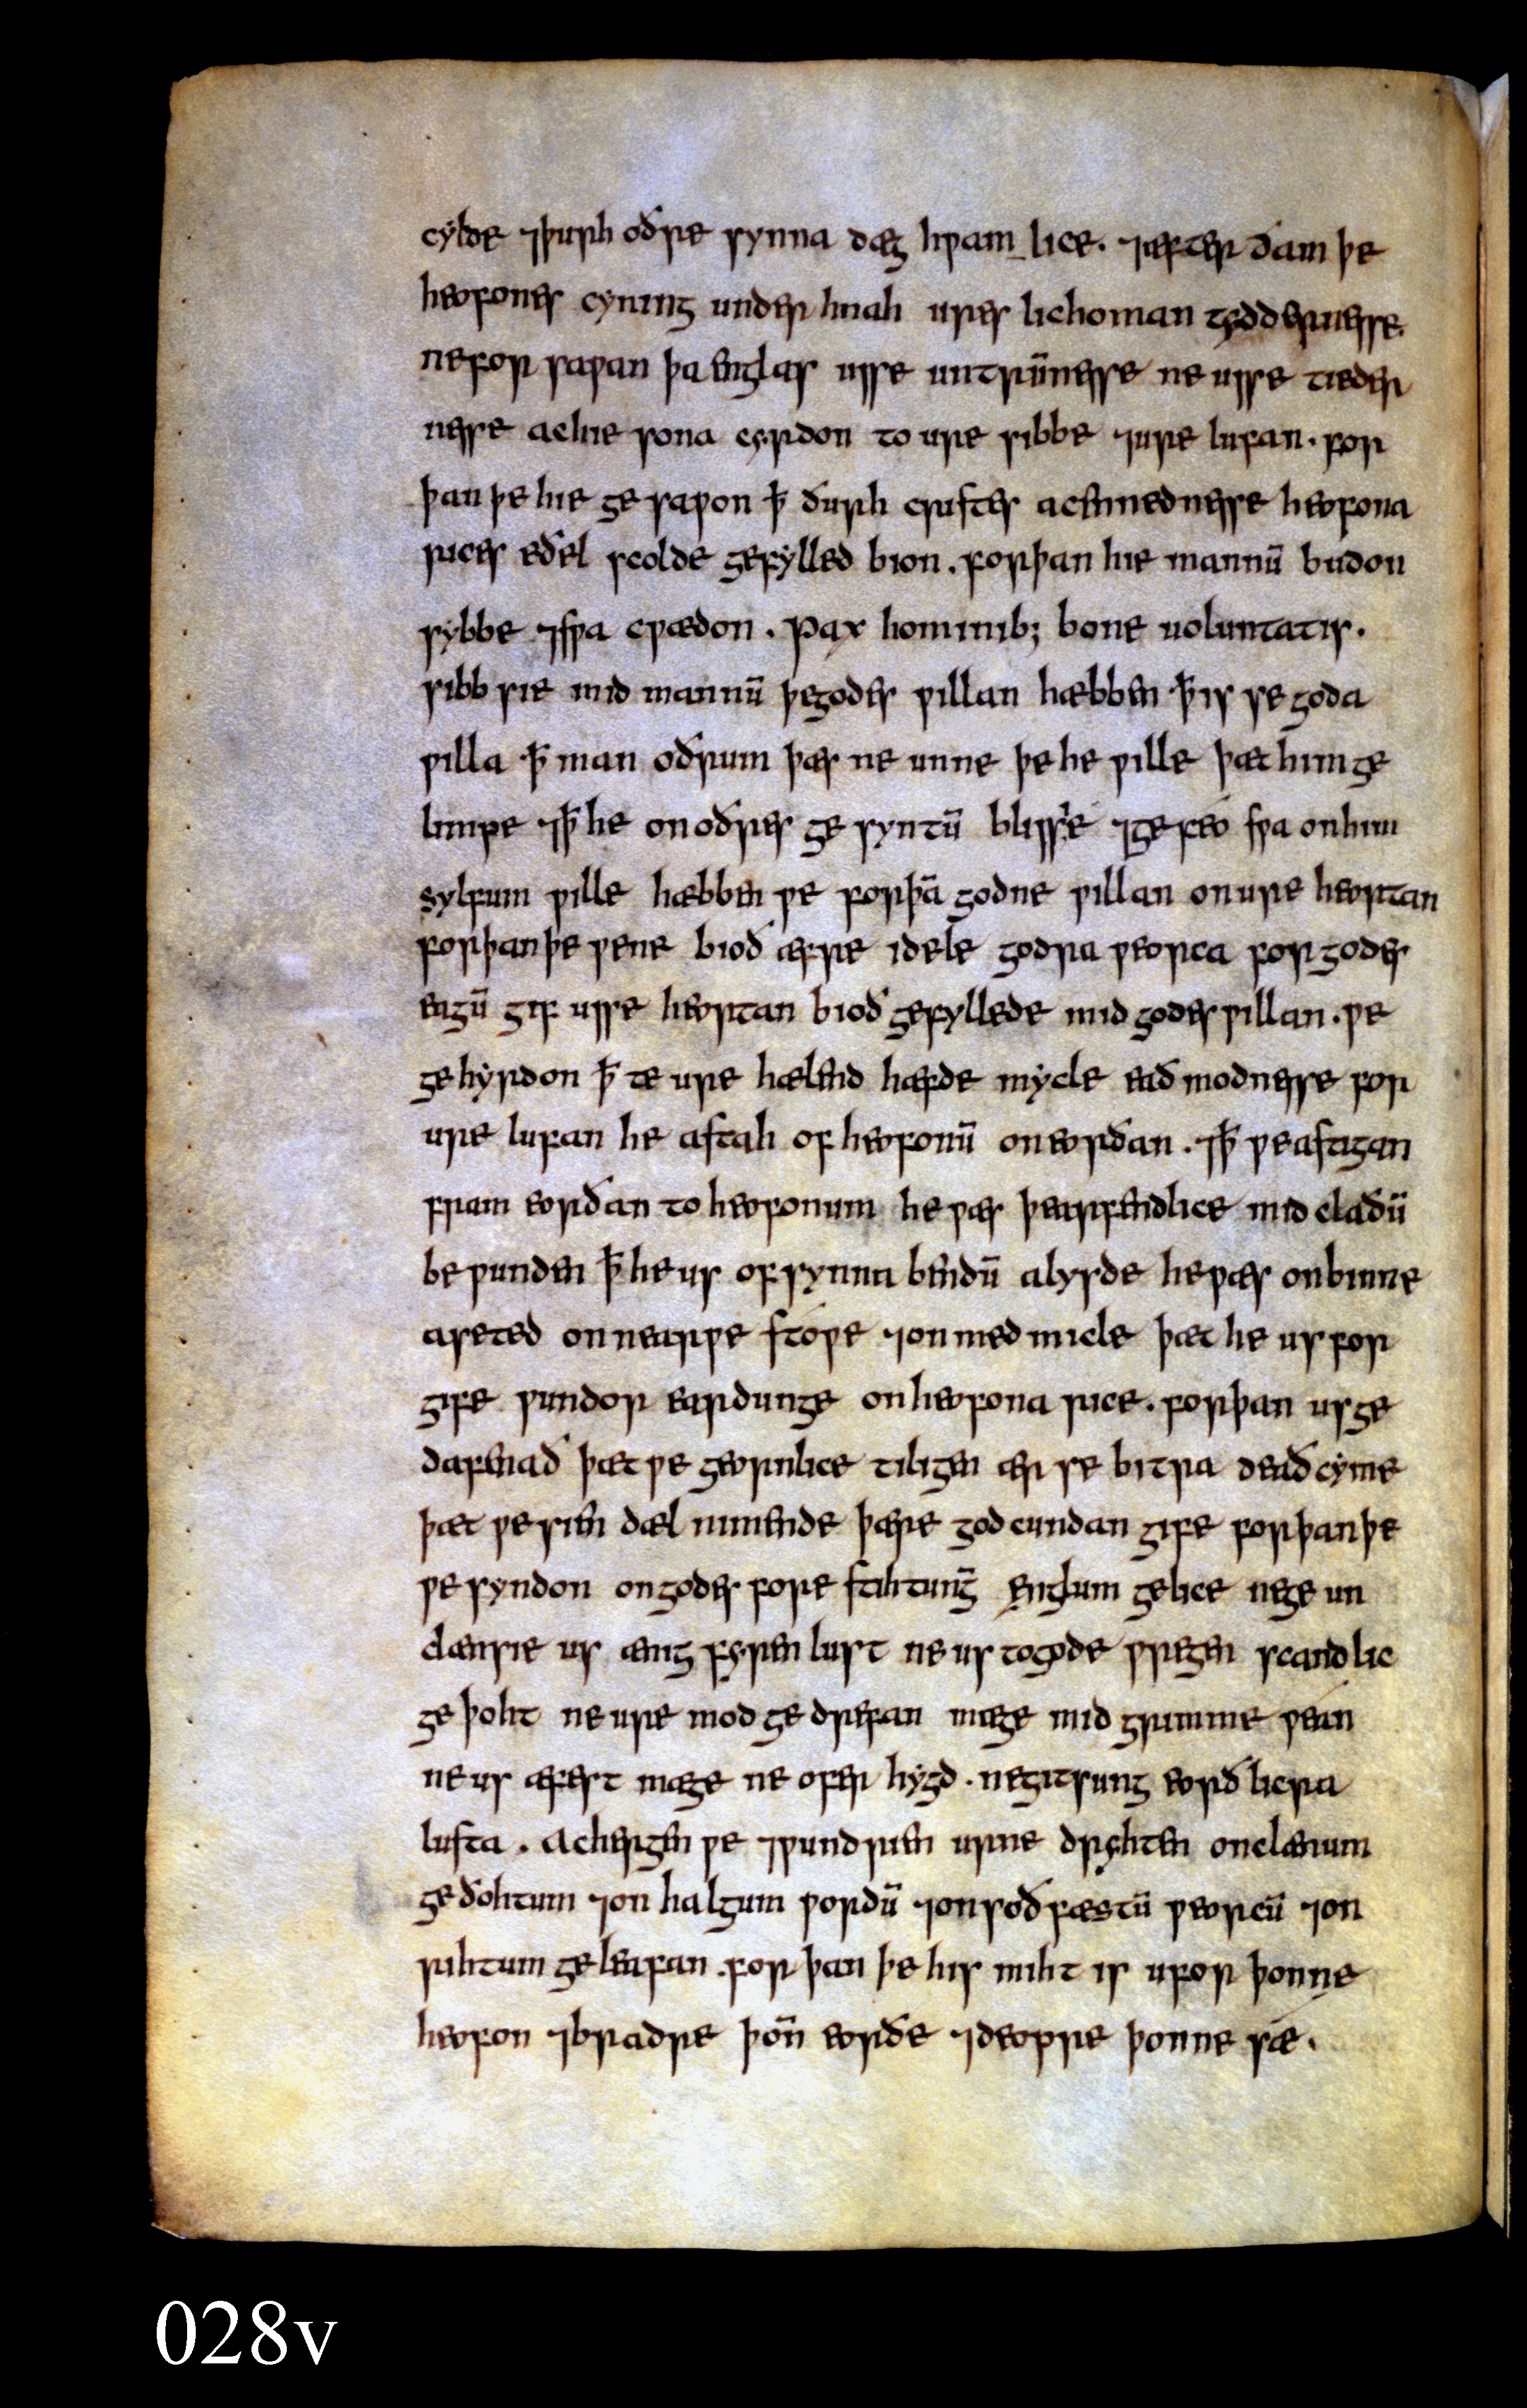 cylde ⁊þurh oðre synna dæghƿamlice. ⁊æfter ðam þe
heofones cyning underhnah ures lichoman tyddernesse.
ne forsaƿan þa englas usse untrūnesse ne usse tieder
nesse ac hie sona cyrdon to ure sibbe ⁊ure lufan. for
þan þe hie gesaƿon ꝥ ðurh cristes acennednesse heofona
rices eðel scolde gefylled bion. forþan hie mannū budon
sybbe ⁊sƿa cƿædon. Pax hominib; bone uoluntatis.
sibb sie mid mannū þe godes ƿillan hæbben ꝥ is se goda
ƿilla ꝥ man oðrum þæs ne unne þe he ƿille þæt him ge
limpe ⁊ꝥ he on oðres gesyntū blissie ⁊gefeo sƿa on him
sylfum ƿille hæbben ƿe forþā godne ƿillan on ure heortan
forþan þe ƿe ne bioð æfre idele godra ƿeorca for godes
eagū gif usse heortan bioð gefyllede mid godes ƿillan. ƿe
gehyrdon ꝥte ure hælend hæfde mycle eaðmodnesse for
ure lufan he astah of heofonū on eorðan. ⁊ꝥ ƿe astigan
fram eorðan to heofonum he ƿæs þearfendlice mid claðū
beƿunden ꝥ he us of synna bendū alysde he ƿæs on binne
aseted on nearƿe stoƿe ⁊on medmicle þæt he us for
gife rundor eardunge on heofona rice. forþan us ge
dafenað þæt ƿe geornlice tiligen ær se bitra deað cyme
þæt ƿe sien dælnimende þære godcundan gife forþan þe
ƿe syndon on godes forestihtung̅ englum gelice ne ge un
clænsie us ænig fyrenlust ne us to gode ƿregen scandlic
geþoht ne ure mod gedrefan mæge mid grimme ƿean
ne us æfest mæge ne oferhygd. ne gitsung eorðlicra
lusta. Ac herigen ƿe ⁊ƿundrien urne dryhten on clænum
geðohtum ⁊on halgum ƿordū ⁊on soðfæstū ƿeorcū ⁊on
rihtum geleafan. for þan þe his miht is ufor þonne
heofon ⁊bradre þōn eorðe ⁊deopre þonne sæ.
028v